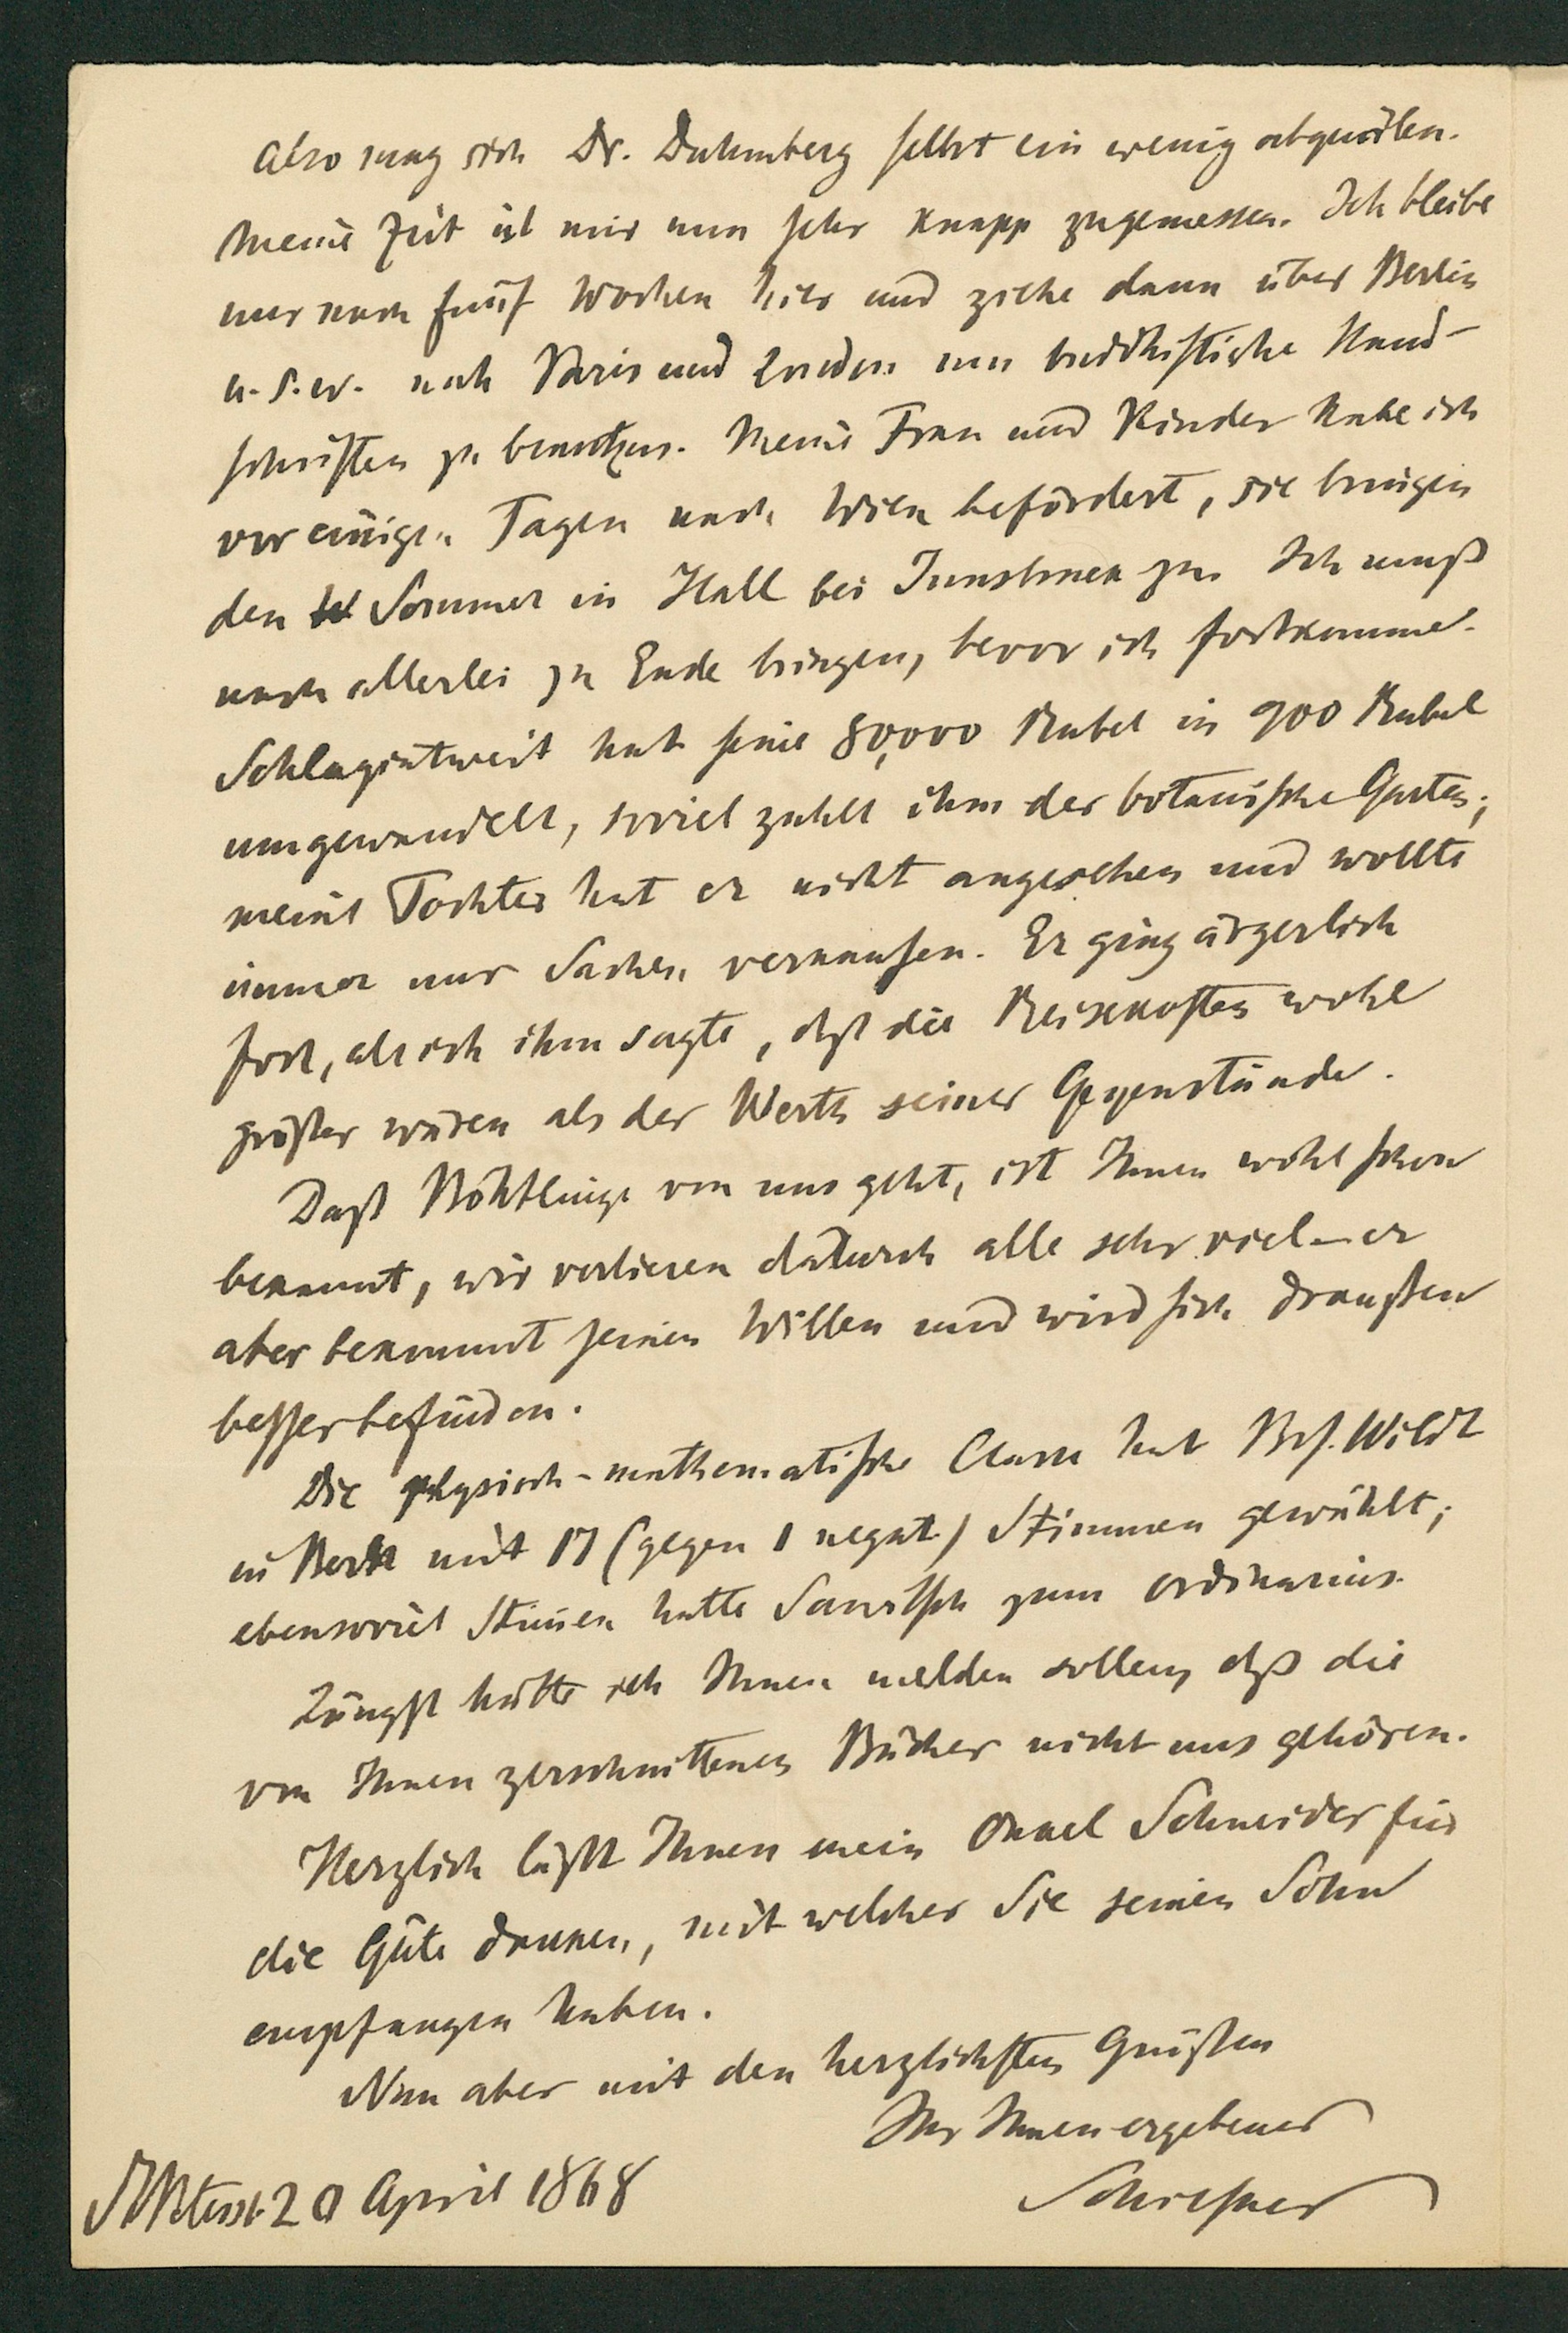 Also mag sich Dr. Duhmberg selbst ein wenig abquälen.
Meine Zeit ist mir nun sehr knapp zugemessen. Ich bleibe
nur noch fünf Wochen hier und ziehe dann über Berlin
u. s. w. nach Paris und London um buddhistische Hand-
schriften zu benutzen. Meine Frau und Kinder habe ich
vor einigen Tagen nach Wien befördert, sie bringen
den Sommer in Hall bei Innsbruck zu. Ich muß
noch allerlei zu Ende bringen, bevor ich fortkomme.
Schlagintweit hat seine 80,000 Rubel in 900 Rubel
umgewandelt, soviel zahlt ihm der botanische Garten;
meine Tochter hat er nicht angesehen und wollte
immer nur Sachen verkaufen. Er ging ärgerlich
fort, als ich ihm sagte, daß die Reisekosten wohl
größer wären als der Werth seiner Gegenstände.
Daß Böhtlingk von uns geht, ist Ihnen wohl schon
bekannt, wir verlieren dadurch alle sehr viel – er
aber bekommt seinen Willen und wird sich draußen
besser befinden.
Die physisch-mathematische Classe hat Prof. Wild
in Bern mit 17 (gegen 1 negat.) Stimmen gewählt;
ebensoviel Stimmen hatte Sawitsch zum Ordinarius.
Längst hätte ich Ihnen melden sollen, daß die
von Ihnen zerschnittenen Bücher nicht uns gehören.
Herzlich läßt Ihnen mein Onkel Schneider für
die Güte danken, mit welcher Sie seinen Sohn
empfangen haben.
Nun aber mit den herzlichsten Grüßen
Ihr Ihnen ergebener
Schiefner
St Petersb. 20 April 1868